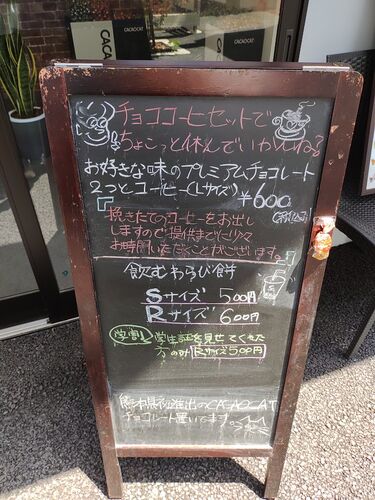 CACAOCAT
チョココーヒーセットで
ちょこっと休んでいかんね?
お好きな味のプレミアムチョコレート
2つとコーヒー(Lサイズ)
¥600
(税込)
挽きたてのコーヒーをお出し
しますので提供までに少々
お時間いただくことがございます。
飲むわらび餅
Sサイズ 500円
Rサイズ 600円
学割! 学生証を見せてくれた
方のみ Rサイズ500円
熊本県初進出のCACAOCAT
チョコレート置いてます。